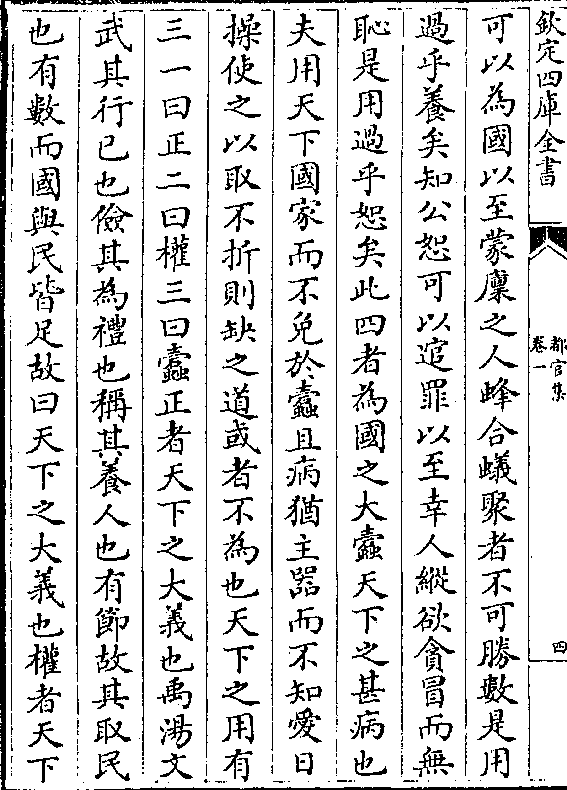 欽定四庫全書
都官集
卷一
四
可以為國以至蒙廩之人蜂合蟻聚者不可勝數是用
過乎養矣知公恕可以逭罪以至幸人縱欲貪冒而無
恥是用過乎恕矣此四者為國之大蠹天下之甚病也
夫用天下國家而不免於蠹且病猶主器而不知愛日
操使之以取不折則缺之道或者不為也天下之用有
三一曰正二曰權三曰蠹正者天下之大義也禹湯文
武其行已也儉其為禮也稱其養人也有節故其取民
也有數而國與民皆足故曰天下之大義也權者天下